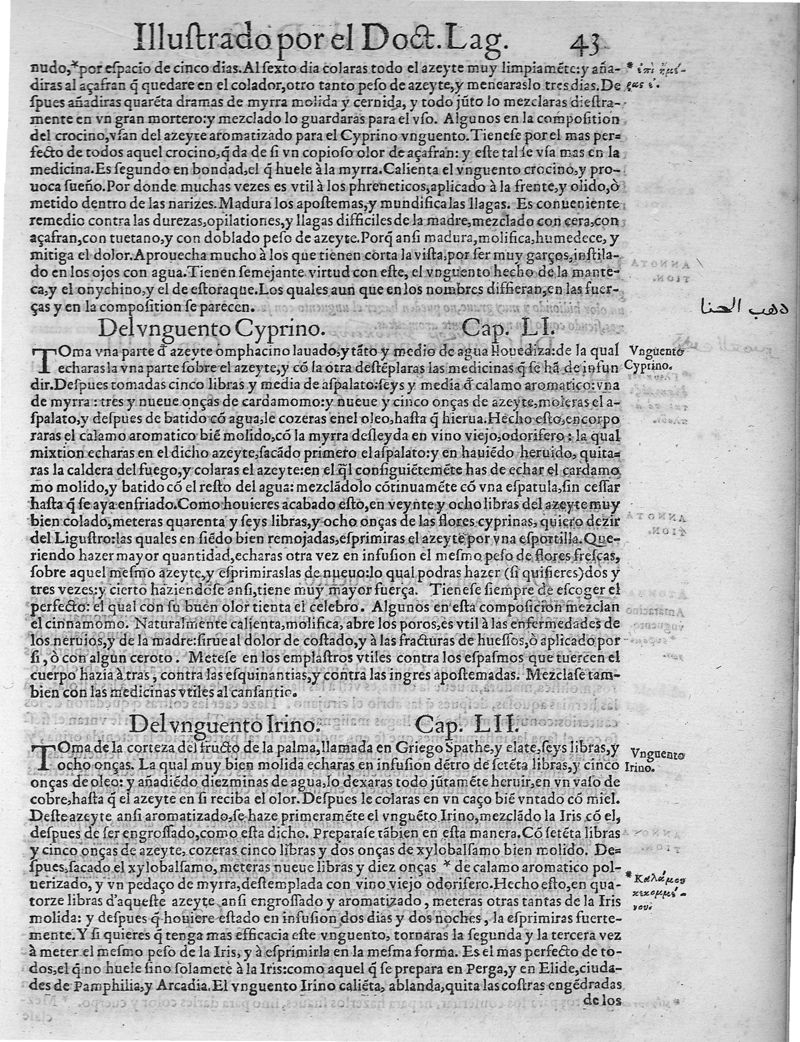 Illuſtrado por el Doct. Lag. 43
nudo,*por eſpacio de cinco dias. Al ſexto dia colaras todo el azeyte muy limpiaméte: y aña-
diras al açafran q̃ quedare en el colador, otro tanto peſo de azeyte, y menearaslo tres dias. De
ſpues añadiras quaréta dramas de myrra molida y cernida, y todo júto lo mezclaras dieſtra-
mente en vn gran mortero: y mezclado lo guardaras para el vſo. Algunos en la compoſition
del crocino, vſan del azeyte aromatizado para el Cyprino vnguento. Tieneſe por el mas per=
fecto de todos aquel crocino, q̃ da de ſi vn copioſo olor de açafran: y eſte tal ſe vſa mas en la
medicina. Es ſegundo en bondad, el q̃ huele à la myrra. Calienta el vnguento crocino, y pro-
uoca ſueño. Por donde muchas vezes es vtil à los phreneticos, aplicado à la frente, y olido, ò
metido dentro de las narizes. Madura los apoſtemas, y mundifica las llagas. Es conueniente
remedio contra las durezas, opilationes, y llagas difficiles de la madre, mezclado con cera, con
açafran, con tuetano, y con doblado peſo de azeyte. Porq̃ anſi madura, molifica, humedece, y
mitiga el dolor. Aprouecha mucho à los que tienen corta la viſta, por ſer muy garços, inſtila-
do en los ojos con agua. Tienen ſemejante virtud con eſte, el vnguento hecho de la mante-
ca, y el onychino, y el de eſtoraque. Los quales aun que en los nombres differan, en las fuer-
ças y en la compoſition ſe parecen.
دهب الحنا
Del vnguento Cyprino. Cap. LI.
TOma vna parte đ azeyte omphacino lauado, y táto y medio de agua llouediza: de la qual
Vnguento
echaras la vna parte ſobre el azeyte, y có la otra deſtéplaras las medicinas q̃ ſe há đ infun
Cyprino.
dir. Deſpues tomadas cinco libras y media de aſpalato: ſeys y media đ calamo aromatico: vna
de myrra: tres y nueue onças de cardamomo: y nueue y cinco onças de azeyte, moleras el a-
ſpalato, y deſpues de batido có agua, le cozeras enel oleo, haſta q̃ hierua. Hecho eſto, encorpo
raras el calamo aromatico bié molido, có la myrra desleyda en vino viejo, odorifero: la qual
mixtion echaras en el dicho azeyte, ſacádo primero el aſpalato: y en hauiédo heruido, quita-
ras la caldera del fuego, y colaras el azeyte: en el q̃l conſiguiéteméte has de echar el cardamo
mo molido, y batido có el reſto del agua: mezcládolo cótinuaméte có vna eſpatula, ſin ceſſar
haſta q̃ ſe aya enfriado. Como houieres acabado eſto, en veynte y ocho libras del azeyte muy
bien colado, meteras quarenta y ſeys libras, y ocho onças de las flores cyprinas, quiero dezir
del Liguſtro: las quales en ſiédo bien remojadas, eſprimiras el azeyte por vna eſportilla. Que-
riendo hazer mayor quantidad, echaras otra vez en infuſion el meſmo peſo de flores freſcas,
ſobre aquel meſmo azeyte, y eſprimiraslas de nueuo: lo qual podras hazer (ſi quiſieres) dos y
tres vezes: y cierto haziendoſe anſi, tiene muy mayor fuerça. Tieneſe ſiempre de eſcoger el
perfecto: el qual con ſu buen olor tienta el celebro. Algunos en eſta compoſicion mezclan
el cinnamomo. Naturalmente calienta, molifica, abre los poros, es vtil à las enfermedades de
los neruios, y de la madre: ſirue al dolor de coſtado, y à las fracturas de hueſſos, ò aplicado por
ſi, ò con algun ceroto. Meteſe en los emplaſtros vtiles contra los eſpaſmos que tuercen el
cuerpo hazia à tras, contra las eſquinantias, y contra las ingres apoſtemadas. Mezclaſe tam-
bien con las medicinas vtiles al canſantio.
Del vnguento Irino. Cap. LII.
TOma de la corteza del fructo de la palma, llamada en Griego Spathe, y elate, ſeys libras, y
Vnguento
ocho onças. La qual muy bien molida echaras en infuſion détro de ſetéta libras, y cinco
Irino.
onças de oleo: y añadiédo diezminas de agua, lo dexaras todo jútaméte heruir, en vn vaſo de
cobre, haſta q̃ el azeyte en ſi reciba el olor. Deſpues le colaras en vn caço bié vntado có miel.
Deſte azeyte anſi aromatizado, ſe haze primeraméte el vnguéto Irino, mezcládo la Iris có el,
deſpues de ſer engroſſado, como eſta dicho. Preparaſe tábien en eſta manera. Có ſetéta libras
y cinco onças de azeyte, cozeras cinco libras y dos onças de xylobalſamo bien molido. De=
ſpues, ſacado el xylobalſamo, meteras nueue libras y diez onças * de calamo aromatico pol-
uerizado, y vn pedaço de myrra, deſtemplada con vino viejo odorifero. Hecho eſto, en qua-
torze libras d'aqueſte azeyte anſi engroſſado y aromatizado, meteras otras tantas de la Iris
molida: y deſpues q̃ houiere eſtado en infuſion dos dias y dos noches, la eſprimiras fuerte-
mente. Y ſi quieres q̃ tenga mas efficacia eſte vnguento, tornaras la ſegunda y la tercera vez
à meter el meſmo peſo de la Iris, y à eſprimirla en la meſma forma. Es el mas perfecto de to-
dos, el q̃ no huele ſino ſolaméte à la Iris: como aquel q̃ ſe prepara en Perga, y en Elide, ciuda-
des de Pamphilia, y Arcadia. El vnguento Irino caliéta, ablanda, quita las coſtras engédradas
de los